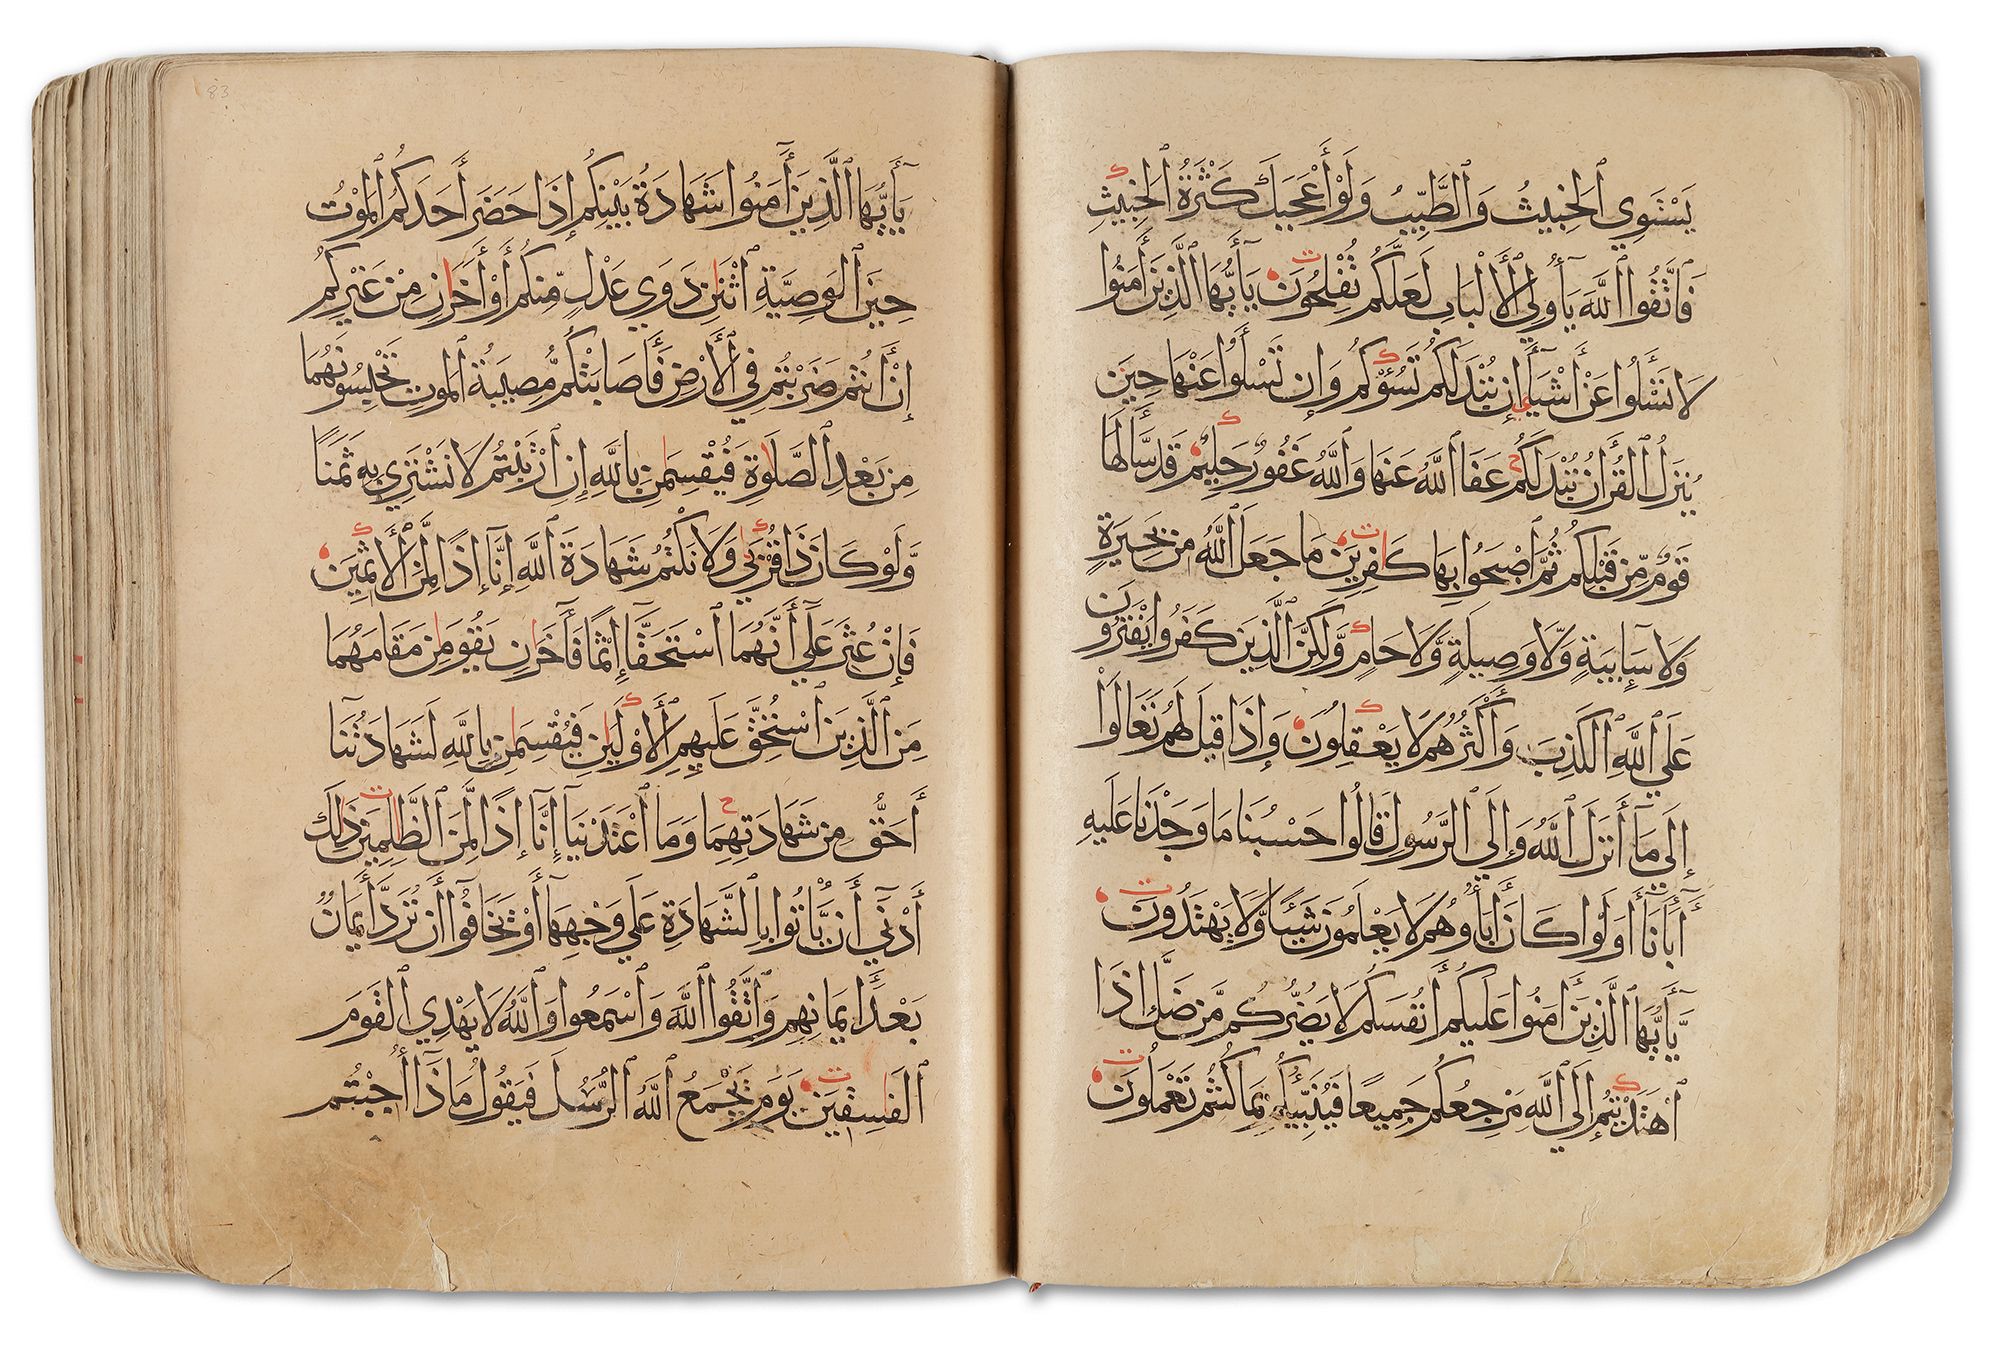 يَسْتَوِي ٱلْخَبِيثُ وَالطَّيِّبُ وَلَوْ أَعْجَبَكَ كَثْرَةُ ٱلْخَبِيثِ
فَاتَّقُوا اللَّهَ يَأُولِي ٱلْأَلْبَابِ لَعَلَّكُمْ تُفْلِحُونَ يَأَيُّهَا الَّذِينَ أَمَنُوا
لَا تَسْأَلُوا عَنْ أَشْيَآءَ إِن تُبْدَ لَكُمْ تَسُؤْكُمْ وَإِن تَسْأَلُوا عَنْهَا حِينَ
يُنَزَّلُ ٱلْقُرْأَنُ تُبْدَ لَكُمْ عَفَا ٱللَّهُ عَنْهَا وَٱللَّهُ غَفُورٌ حَلِيمٌ قَدْ سَأَلَهَا
قَوْمٌ مِّن قَبْلِكُمْ ثُمَّ أَصْبَحُوا بِهَا كَافِرِينَ مَا جَعَلَ ٱللَّهُ مِنْ بَحِيرَةٍ
وَلَا سَآئِبَةٍ وَّلَا وَصِيلَةٍ وَّلَا حَامٍ وَّلَكِنَّ ٱلَّذِينَ كَفَرُوا يَفْتَرُونَ
عَلَى ٱللَّهِ ٱلْكَذِبَ وَأَكْثَرُهُمْ لَا يَعْقِلُونَ وَإِذَا قِيلَ لَهُمْ تَعَالَوْا
إِلَى مَآ أَنْزَلَ ٱللَّهُ وَإِلَى ٱلرَّسُولِ قَالُوا حَسْبُنَا مَا وَجَدْنَا عَلَيْهِ
أَبَآءَنَآ أَوَلَوْ كَانَ أَبَآؤُهُمْ لَا يَعْلَمُونَ شَيْئًا وَّلَا يَهْتَدُونَ
يَّأَيُّهَا ٱلَّذِينَ أَمَنُوا عَلَيْكُمْ أَنْفُسَكُمْ لَا يَضُرُّكُم مَّن ضَلَّ إِذَا
ٱهْتَدَيْتُمْ إِلَى ٱللَّهِ مَرْجِعُكُمْ جَمِيعًا فَيُنَبِّئُكُمْ بِمَا كُنْتُمْ تَعْمَلُونَ
83
يَأَيُّهَا ٱلَّذِينَ أَمَنُوا شَهَادَةُ بَيْنِكُمْ إِذَا حَضَرَ أَحَدَكُمُ ٱلْمَوْتُ
حِينَ ٱلْوَصِيَّةِ ٱثْنَانِ ذَوَيْ عَدْلٍ مِّنْكُمْ أَوْ أَخَرَانِ مِنْ غَيْرِكُمْ
إِنْ أَنْتُمْ ضَرَبْتُمْ فِي ٱلْأَرْضِ فَأَصَابَتْكُمْ مُّصِيبَةُ ٱلْمَوْتِ تَحْبِسُونَهُمَا
مِنْ بَعْدِ ٱلصَّلَوٰةِ فَيُقْسِمَانِ بِاللَّهِ إِنِ ٱرْتَبْتُمْ لَا نَشْتَرِي بِهِ ثَمَنًا
وَّلَوْ كَانَ ذَا قُرْبَى وَلَا نَكْتُمُ شَهَادَةَ ٱللَّهِ إِنَّا إِذًا لَّمِنَ ٱلْأَثِمِينَ
فَإِنْ عُثِرَ عَلَى أَنَّهُمَا ٱسْتَحَقَّا إِثْمًا فَأَخَرَانِ يَقُومَانِ مَقَامَهُمَا
مِنَ ٱلَّذِينَ ٱسْتُحِقَّ عَلَيْهِمِ ٱلْأَوْلَيَانِ فَيُقْسِمَانِ بِاللَّهِ لَشَهَادَتُنَا
أَحَقُّ مِنْ شَهَادَتِهِمَا وَمَا ٱعْتَدَيْنَآ إِنَّا إِذًا لَّمِنَ ٱلظَّالِمِينَ ذَلِكَ
أَدْنَى أَن يَّأْتُوا بِٱلشَّهَادَةِ عَلَى وَجْهِهَآ أَوْ يَخَافُوآ أَنْ تُرَدَّ أَيْمَانٌ
بَعْدَ أَيْمَانِهِمْ وَٱتَّقُوا ٱللَّهَ وَٱسْمَعُوا وَٱللَّهُ لَا يَهْدِي ٱلْقَوْمَ
ٱلْفَاسِقِينَ يَوْمَ يَجْمَعُ ٱللَّهُ ٱلرُّسُلَ فَيَقُولُ مَاذَآ أُجِبْتُمْ